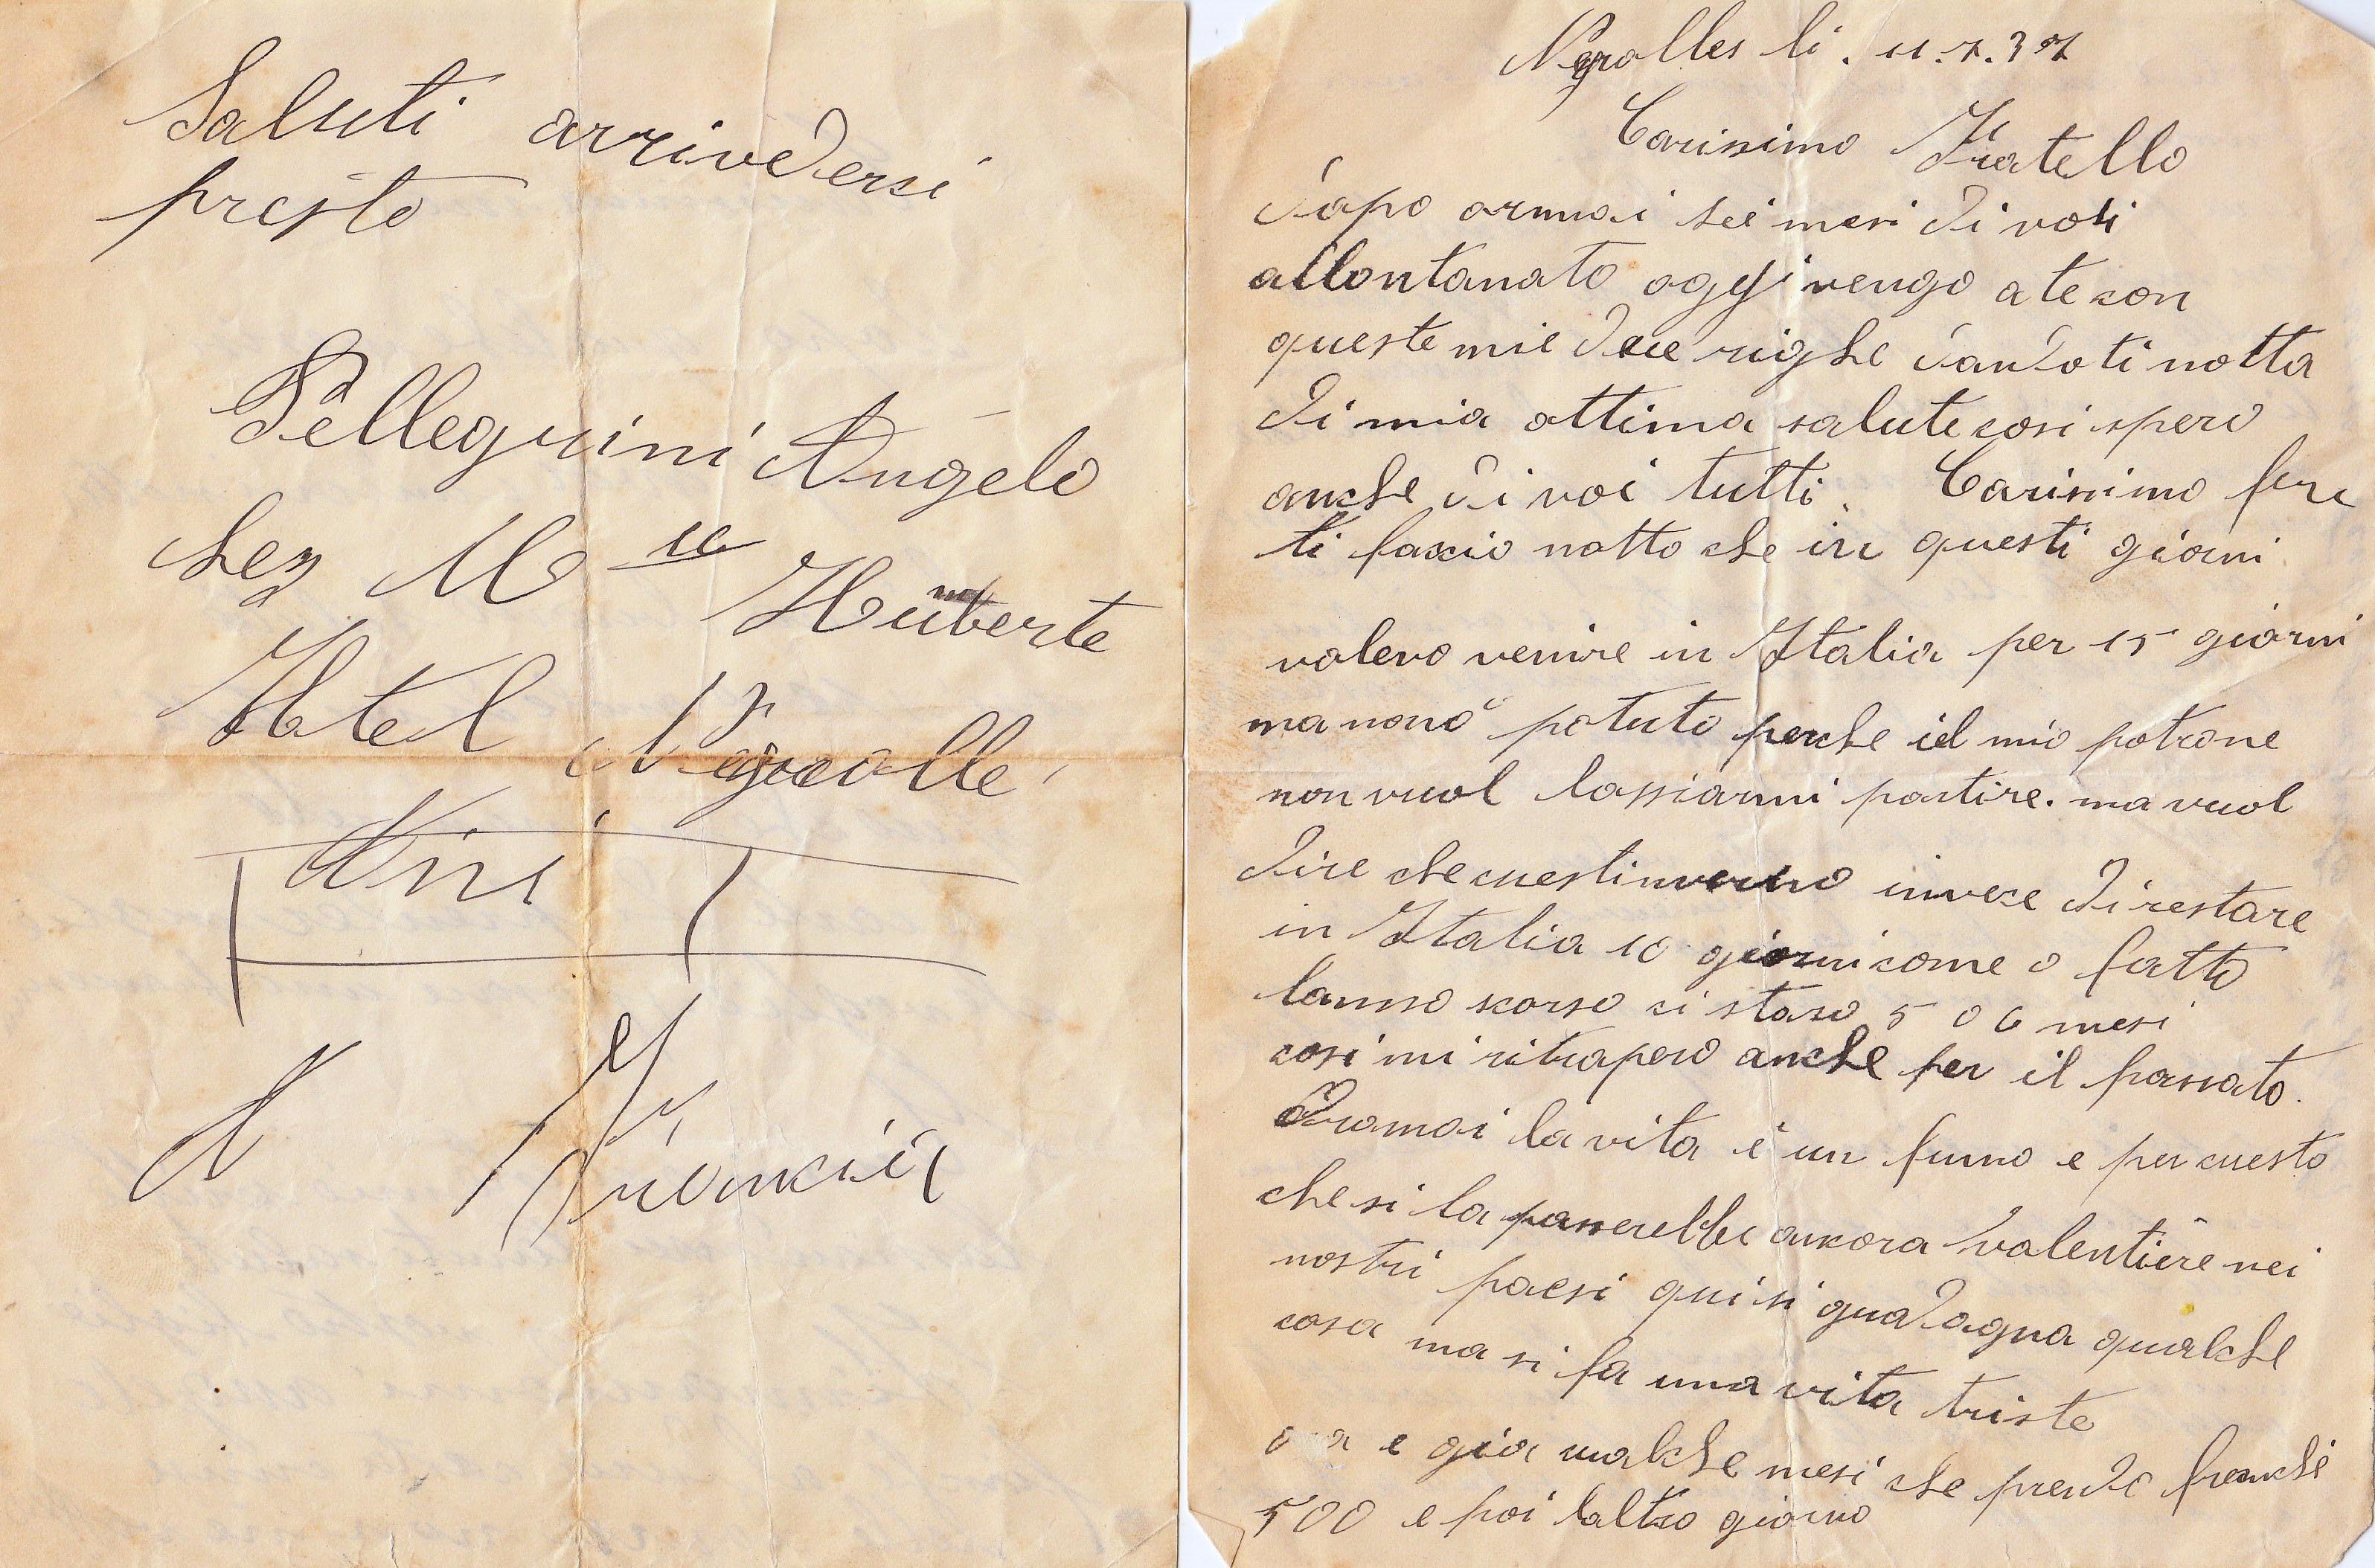 Saluti arrivedersi
presto
Pellegrini Angelo
chez M
Huberte
Hotel
Ain
Francia
li. 11.7.37
Carissimo Fratello
Dopo ormai sei mesi di voti
allontanato oggi vengo a te con
queste mie due righe dandoti notta
di mia ottima salute cosi spero
anche di voi tutti. Carissimo
ti faccio notto che in questi giorni
volevo venire in Italia per 15 giorni
ma nonò potuto perche il mio patrone
non vuol lassiarmi partire. ma vuol
dire che cuestinverno invece di restare
in Italia 10 giorni come o fatto
lanno scorso ci staro 5 o 6 mesi
cosi mi ritrapero anche per il passato.
Oramai la vita è un fumo e per cuesto
che si la passerebbe ancora valentiere nei
nostri paesi qui si guadagna qualche
cosa ma si fa una vita triste
e già cualche mesi che prendo franchi
500 e poi laltro giorno